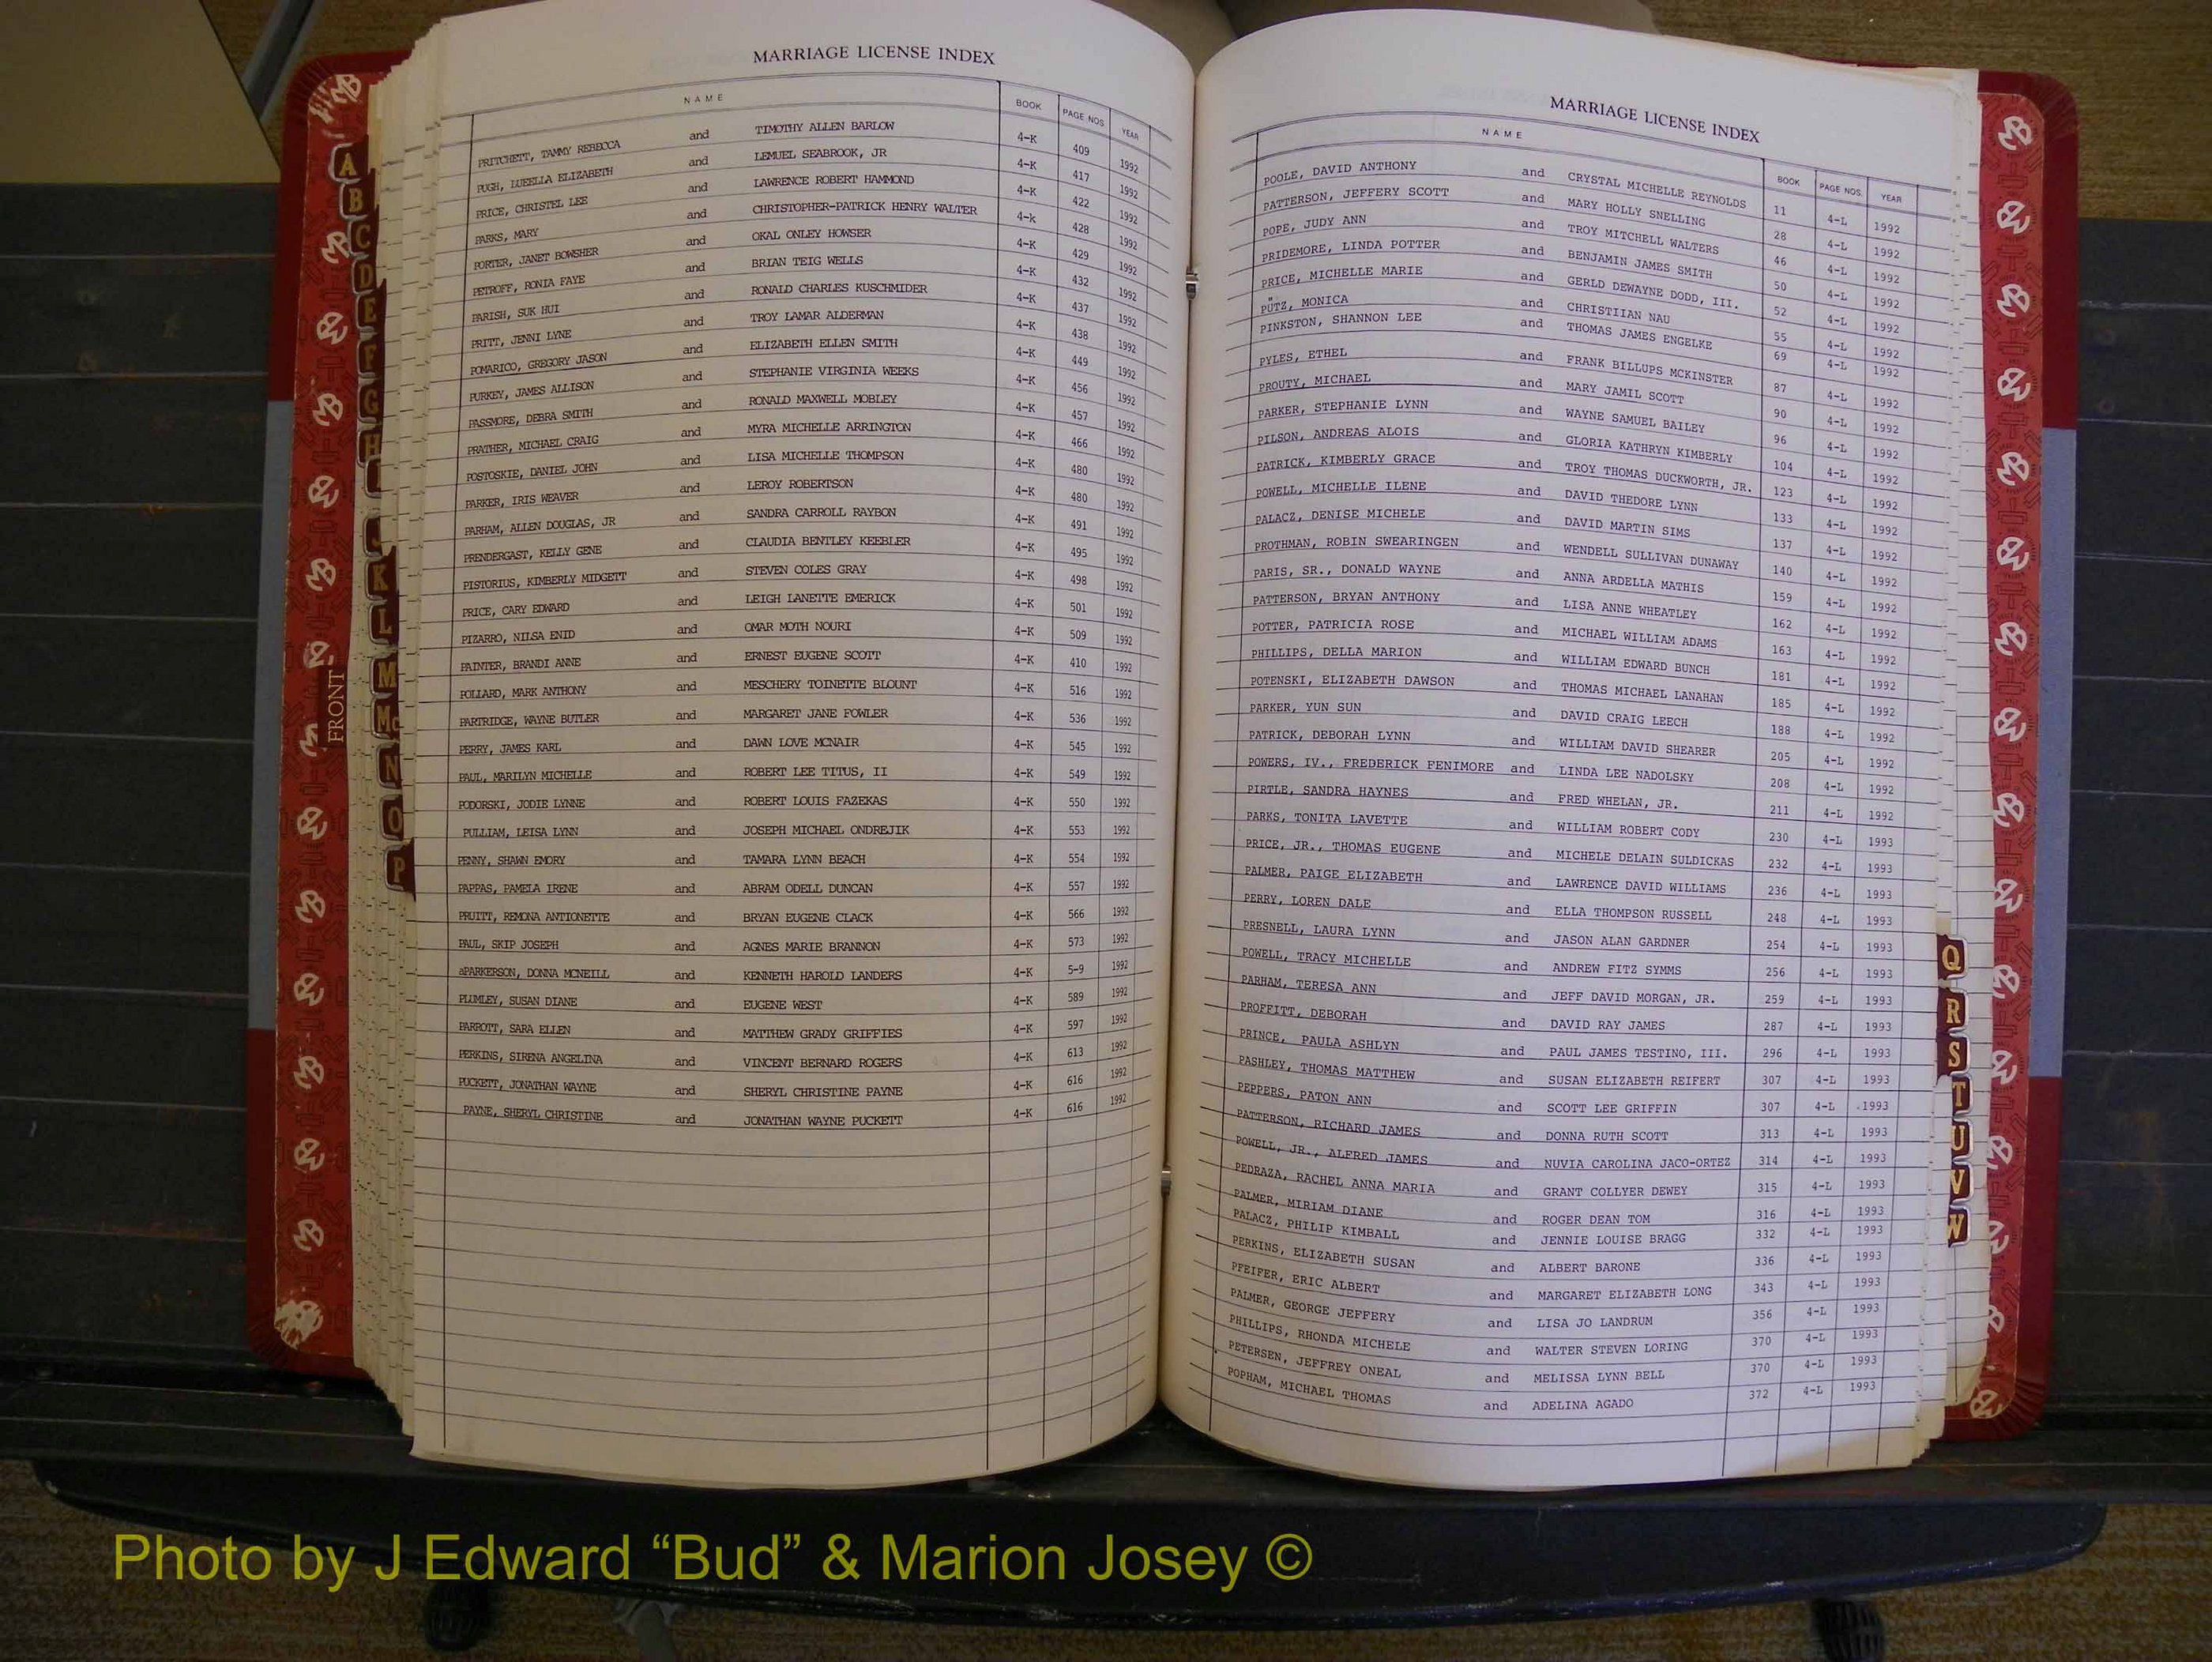 MARRIAGE LICENSE INDEX
NAME BOOK PAGE NOS YEAR
PRITCHETT, TAMMY REBECCA and TIMOTHY ALLEN BARLOW 4-K 409 1992
PUGH, LUEELLA ELIZABETH and LEMUEL SEABROOK, JR 4-K 417 1992
PRICE, CHRISTEL LEE and LAWRENCE ROBERT HAMMOND 4-K 422 1992
PARKS, MARY and CHRISTOPHER-PATRICK HENRY WALTER 4-k 428 1992
PORTER, JANET BOWSHER and OKAL ONLEY HOWSER 4-K 429 1992
PETROFF, RONIA FAYE and BRIAN TEIG WELLS 4-K 432 1992
PARISH, SUK HUI and RONALD CHARLES KUSCHMIDER 4-K 437 1992
PRITT, JENNI LYNE and TROY LAMAR ALDERMAN 4-K 438 1992
POMARICO, GREGORY JASON and ELIZABETH ELLEN SMITH 4-K 449 1992
PURKEY, JAMES ALLISON and STEPHANIE VIRGINIA WEEKS 4-K 456 1992
PASSMORE, DEBRA SMITH and RONALD MAXWELL MOBLEY 4-K 457 1992
PRATHER, MICHAEL CRAIG and MYRA MICHELLE ARRINGTON 4-K 466 1992
POSTOSKIE, DANIEL JOHN and LISA MICHELLE THOMPSON 4-K 480 1992
PARKER, IRIS WEAVER and LEROY ROBERTSON 4-K 480 1992
PARHAM, ALLEN DOUGLAS, JR and SANDRA CARROLL RAYBON 4-K 491 1992
PRENDERGAST, KELLY GENE and CLAUDIA BENTLEY KEEBLER 4-K 495 1992
PISTORIUS, KIMBERLY MIDGETT and STEVEN COLES GRAY 4-K 498 1992
PRICE, CARY EDWARD and LEIGH LANETTE EMERICK 4-K 501 1992
PIZARRO, NILSA ENID and OMAR MOTH NOURI 4-K 509 1992
PAINTER, BRANDI ANNE and ERNEST EUGENE SCOTT 4-K 410 1992
POLLARD, MARK ANTHONY and MESCHERY TOINETTE BLOUNT 4-K 516 1992
PARTRIDGE, WAYNE BUTLER and MARGARET JANE FOWLER 4-K 536 1992
PERRY, JAMES KARL and DAWN LOVE MCNAIR 4-K 545 1992
PAUL, MARILYN MICHELLE and ROBERT LEE TITUS, II 4-K 549 1992
PODORSKI, JODIE LYNNE and ROBERT LOUIS FAZEKAS 4-K 550 1992
PULLIAM, LEISA LYNN and JOSEPH MICHAEL ONDREJIK 4-K 553 1992
PENNY, SHAWN EMORY and TAMARA LYNN BEACH 4-K 554 1992
PAPPAS, PAMELA IRENE and ABRAM ODELL DUNCAN 4-K 557 1992
PRUITT, REMONA ANTIONETTE and BRYAN EUGENE CLACK 4-K 566 1992
PAUL, SKIP JOSEPH and AGNES MARIE BRANNON 4-K 573 1992
aPARKERSON, DONNA MCNEILL and KENNETH HAROLD LANDERS 4-K 5-9 1992
PLUMLEY, SUSAN DIANE and EUGENE WEST 4-K 589 1992
PARROTT, SARA ELLEN and MATTHEW GRADY GRIFFIES 4-K 597 1992
PERKINS, SIRENA ANGELINA and VINCENT BERNARD ROGERS 4-K 613 1992
PUCKETT, JONATHAN WAYNE and SHERYL CHRISTINE PAYNE 4-K 616 1992
PAYNE, SHERYL CHRISTINE and JONATHAN WAYNE PUCKETT 4-K 616 1992
MARRIAGE LICENSE INDEX
NAME BOOK PAGE NOS. YEAR
POOLE, DAVID ANTHONY and CRYSTAL MICHELLE REYNOLDS 11 4-L 1992
PATTERSON, JEFFERY SCOTT and MARY HOLLY SNELLING 28 4-L 1992
POPE, JUDY ANN and TROY MITCHELL WALTERS 46 4-L 1992
PRIDEMORE, LINDA POTTER and BENJAMIN JAMES SMITH 50 4-L 1992
PRICE, MICHELLE MARIE and GERLD DEWAYNE DODD, III. 52 4-L 1992
PÜTZ, MONICA and CHRISTIIAN NAU 55 4-L 1992
PINKSTON, SHANNON LEE and THOMAS JAMES ENGELKE 69 4-L 1992
PYLES, ETHEL and FRANK BILLUPS MCKINSTER 87 4-L 1992
PROUTY, MICHAEL and MARY JAMIL SCOTT 90 4-L 1992
PARKER, STEPHANIE LYNN and WAYNE SAMUEL BAILEY 96 4-L 1992
PILSON, ANDREAS ALOIS and GLORIA KATHRYN KIMBERLY 104 4-L 1992
PATRICK, KIMBERLY GRACE and TROY THOMAS DUCKWORTH, JR. 123 4-L 1992
POWELL, MICHELLE ILENE and DAVID THEDORE LYNN 133 4-L 1992
PALACZ, DENISE MICHELE and DAVID MARTIN SIMS 137 4-L 1992
PROTHMAN, ROBIN SWEARINGEN and WENDELL SULLIVAN DUNAWAY 140 4-L 1992
PARIS, SR., DONALD WAYNE and ANNA ARDELLA MATHIS 159 4-L 1992
PATTERSON, BRYAN ANTHONY and LISA ANNE WHEATLEY 162 4-L 1992
POTTER, PATRICIA ROSE and MICHAEL WILLIAM ADAMS 163 4-L 1992
PHILLIPS, DELLA MARION and WILLIAM EDWARD BUNCH 181 4-L 1992
POTENSKI, ELIZABETH DAWSON and THOMAS MICHAEL LANAHAN 185 4-L 1992
PARKER, YUN SUN and DAVID CRAIG LEECH 188 4-L 1992
PATRICK, DEBORAH LYNN and WILLIAM DAVID SHEARER 205 4-L 1992
POWERS, IV., FREDERICK FENIMORE and LINDA LEE NADOLSKY 208 4-L 1992
PIRTLE, SANDRA HAYNES and FRED WHELAN, JR. 211 4-L 1992
PARKS, TONITA LAVETTE and WILLIAM ROBERT CODY 230 4-L 1993
PRICE, JR., THOMAS EUGENE and MICHELE DELAIN SULDICKAS 232 4-L 1993
PALMER, PAIGE ELIZABETH and LAWRENCE DAVID WILLIAMS 236 4-L 1993
PERRY, LOREN DALE and ELLA THOMPSON RUSSELL 248 4-L 1993
PRESNELL, LAURA LYNN and JASON ALAN GARDNER 254 4-L 1993
POWELL, TRACY MICHELLE and ANDREW FITZ SYMMS 256 4-L 1993
PARHAM, TERESA ANN and JEFF DAVID MORGAN, JR. 259 4-L 1993
PROFFITT, DEBORAH and DAVID RAY JAMES 287 4-L 1993
PRINCE, PAULA ASHLYN and PAUL JAMES TESTINO, III. 296 4-L 1993
PASHLEY, THOMAS MATTHEW and SUSAN ELIZABETH REIFERT 307 4-L 1993
PEPPERS, PATON ANN and SCOTT LEE GRIFFIN 307 4-L 1993
PATTERSON, RICHARD JAMES and DONNA RUTH SCOTT 313 4-L 1993
POWELL, JR., ALFRED JAMES and NUVIA CAROLINA JACO-ORTEZ 314 4-L 1993
PEDRAZA, RACHEL ANNA MARIA and GRANT COLLYER DEWEY 315 4-L 1993
PALMER, MIRIAM DIANE and ROGER DEAN TOM 316 4-L 1993
PALACZ, PHILIP KIMBALL and JENNIE LOUISE BRAGG 332 4-L 1993
PERKINS, ELIZABETH SUSAN and ALBERT BARONE 336 4-L 1993
PFEIFER, ERIC ALBERT and MARGARET ELIZABETH LONG 343 4-L 1993
PALMER, GEORGE JEFFERY and LISA JO LANDRUM 356 4-L 1993
PHILLIPS, RHONDA MICHELE and WALTER STEVEN LORING 370 4-L 1993
PETERSEN, JEFFREY ONEAL and MELISSA LYNN BELL 370 4-L 1993
POPHAM, MICHAEL THOMAS and ADELINA AGADO 372 4-L 1993
A
B
C
D
E
F
G
H
I
J
K
L
M
Mc
N
O
P
FRONT
Q
R
S
T
U
V
W
Photo by J Edward “Bud” & Marion Josey ©